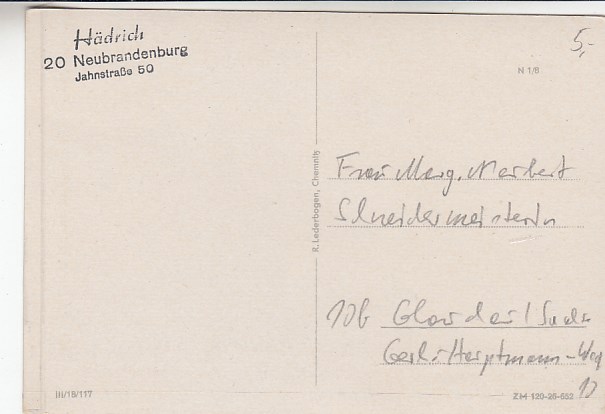 Hädrich
20 Neubrandenburg
Jahnstraße 50
5,-
N 1/8
R. Lederbogen, Chemnitz
Frau Marg. Merbert
Schneidermeisterin
10b
Gerh. Hauptmann-Weg
III/18/117